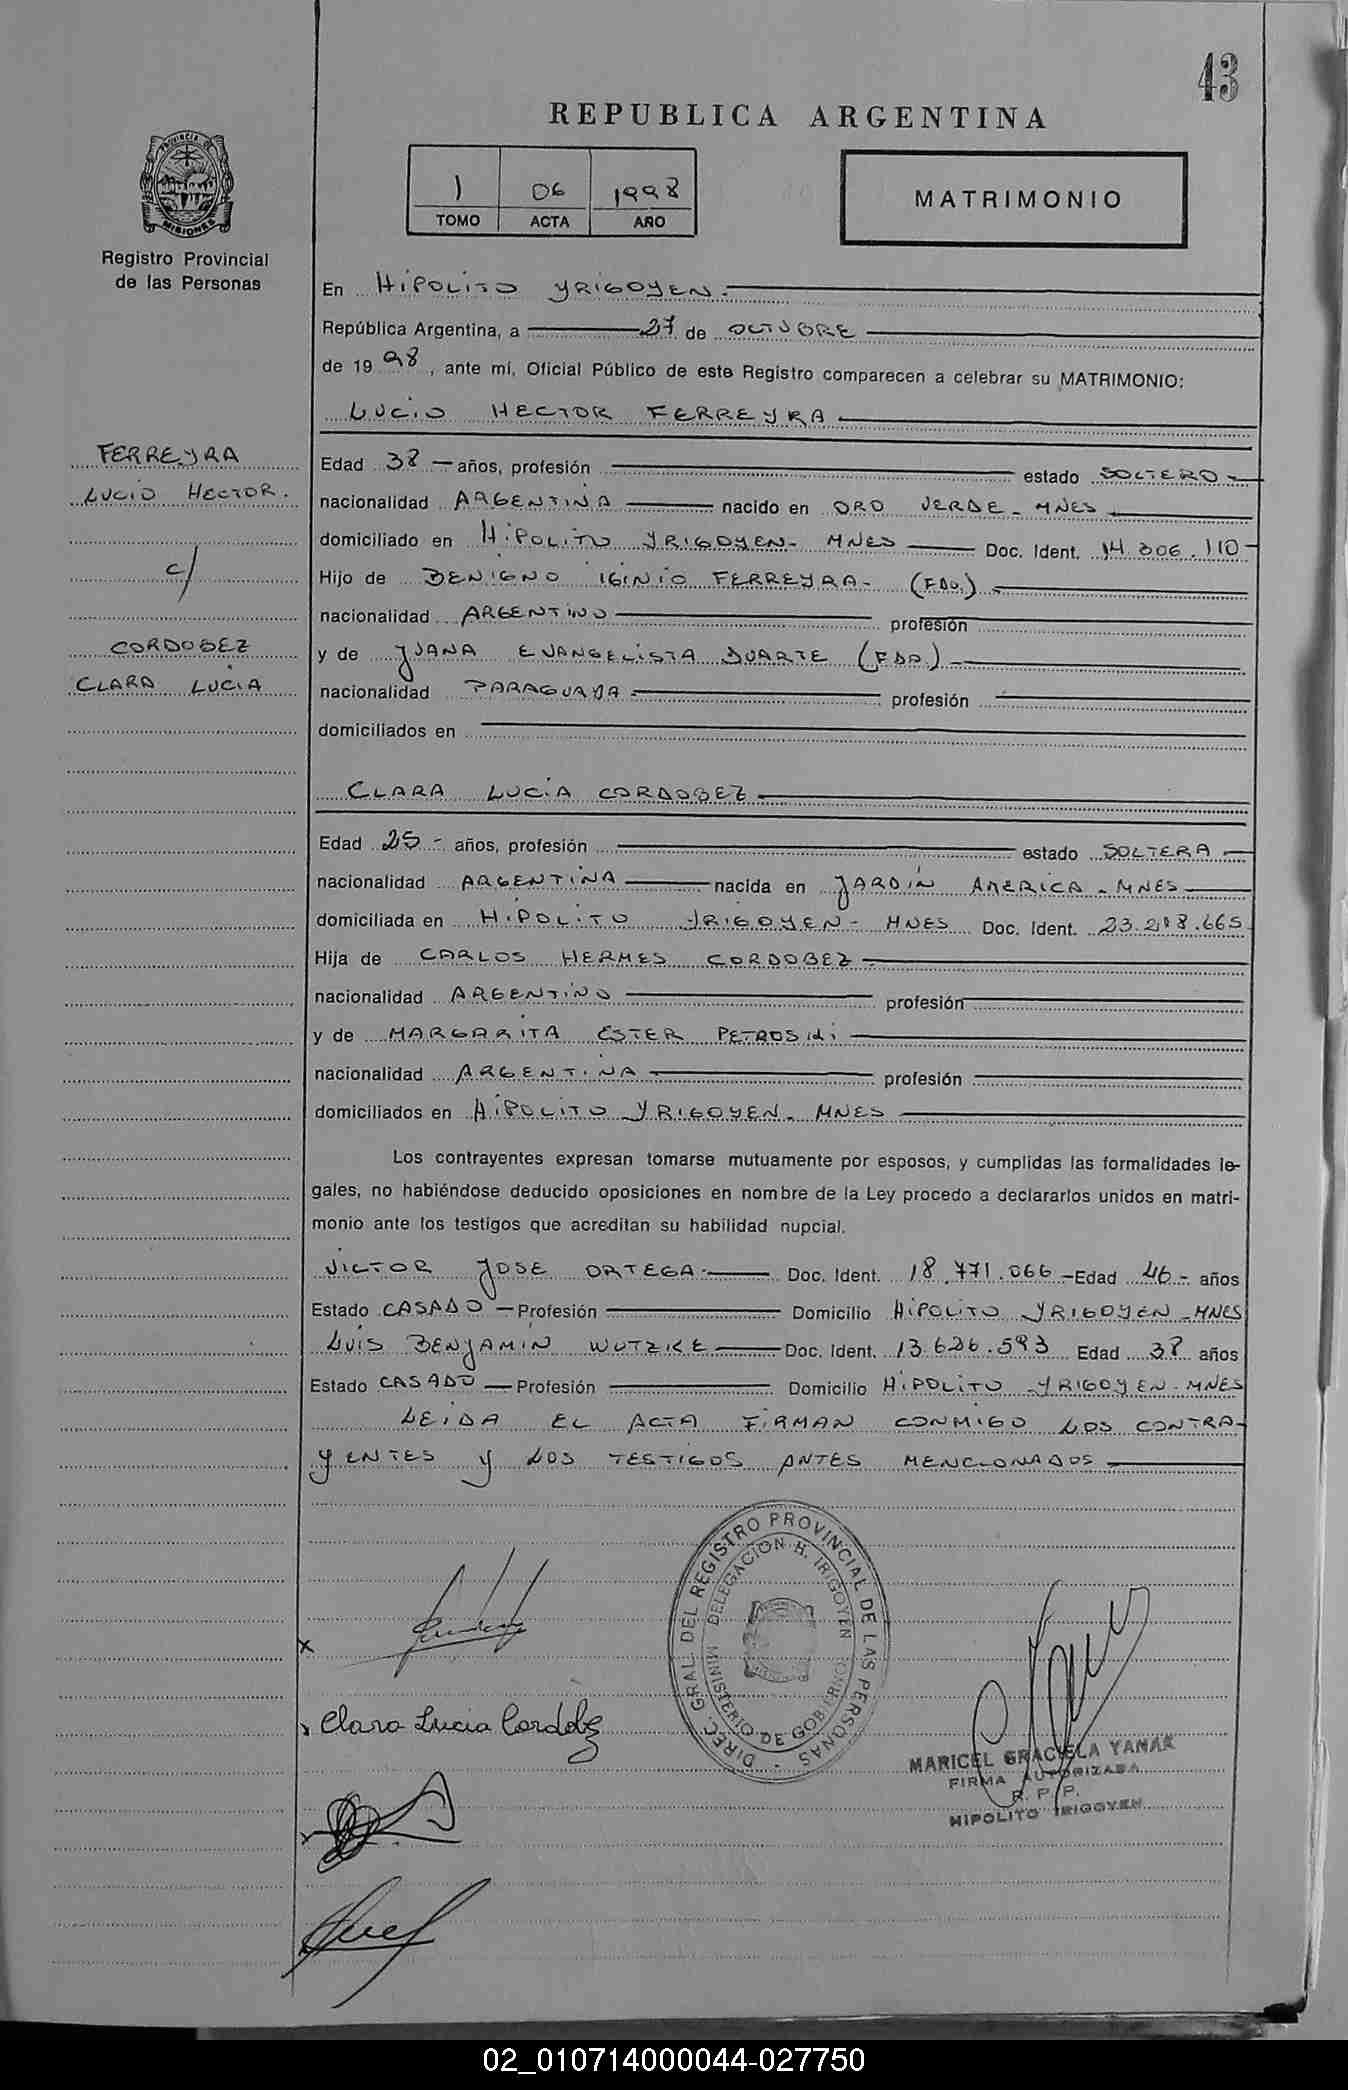 43
REPUBLICA ARGENTINA
1 06 1998
TOMO ACTA AÑO
MATRIMONIO
Registro Provincial
de las Personas
En HIPOLITO YRIGOYEN.
República Argentina, a 27 de OCTUBRE
de 19 98, ante mí, Oficial Público de este Registro comparecen a celebrar su MATRIMONIO:
LUCIO HECTOR FERREYRA
FERREYRA
LUCIO HECTOR.
c/
CORDOBEZ
CLARA LUCIA
Edad 38 años, profesión estado SOLTERO
nacionalidad ARGENTINA nacido en ORO VERDE - MNES
domiciliado en HIPOLITO YRIGOYEN - MNES Doc. Ident. 14.306.110
Hijo de BENIGNO IGINIO FERREYRA - (FDO.)
nacionalidad ARGENTINO profesión
y de JUANA EVANGELISTA DUARTE (FDA.)
nacionalidad PARAGUAYA profesión
domiciliados en
CLARA LUCIA CORDOBEZ
Edad 25 - años, profesión estado SOLTERA
nacionalidad ARGENTINA nacida en JARDIN AMERICA - MNES
domiciliada en HIPOLITO YRIGOYEN - MNES Doc. Ident.
Hija de CARLOS HERMES CORDOBEZ
nacionalidad ARGENTINO profesión
y de MARGARITA ESTER
nacionalidad ARGENTINA profesión
domiciliados en HIPOLITO YRIGOYEN - MNES
Los contrayentes expresan tomarse mutuamente por esposos, y cumplidas las formalidades le-
gales, no habiéndose deducido oposiciones en nombre de la Ley procedo a declararlos unidos en matri-
monio ante los testigos que acreditan su habilidad nupcial.
VICTOR JOSE ORTEGA Doc. Ident. 18.771.066 - Edad 46 - años
Estado CASADO - Profesión Domicilio HIPOLITO YRIGOYEN - MNES
LUIS BENJAMIN WUTZKE Doc. Ident. 13.626.593 Edad 38 años
Estado CASADO - Profesión Domicilio HIPOLITO YRIGOYEN - MNES
LEIDA EL ACTA FIRMAN CONMIGO LOS CONTRA-
YENTES Y LOS TESTIGOS ANTES MENCIONADOS
DIREC. GRAL. DEL REGISTRO PROVINCIAL DE LAS PERSONAS
DELEGACION H. IRIGOYEN
MINISTERIO DE GOBIERNO
Clara Lucia Cordobez
MARICEL GRACIELA YANAK
FIRMA AUTORIZADA
R. P. P.
HIPOLITO IRIGOYEN
02_010714000044-027750